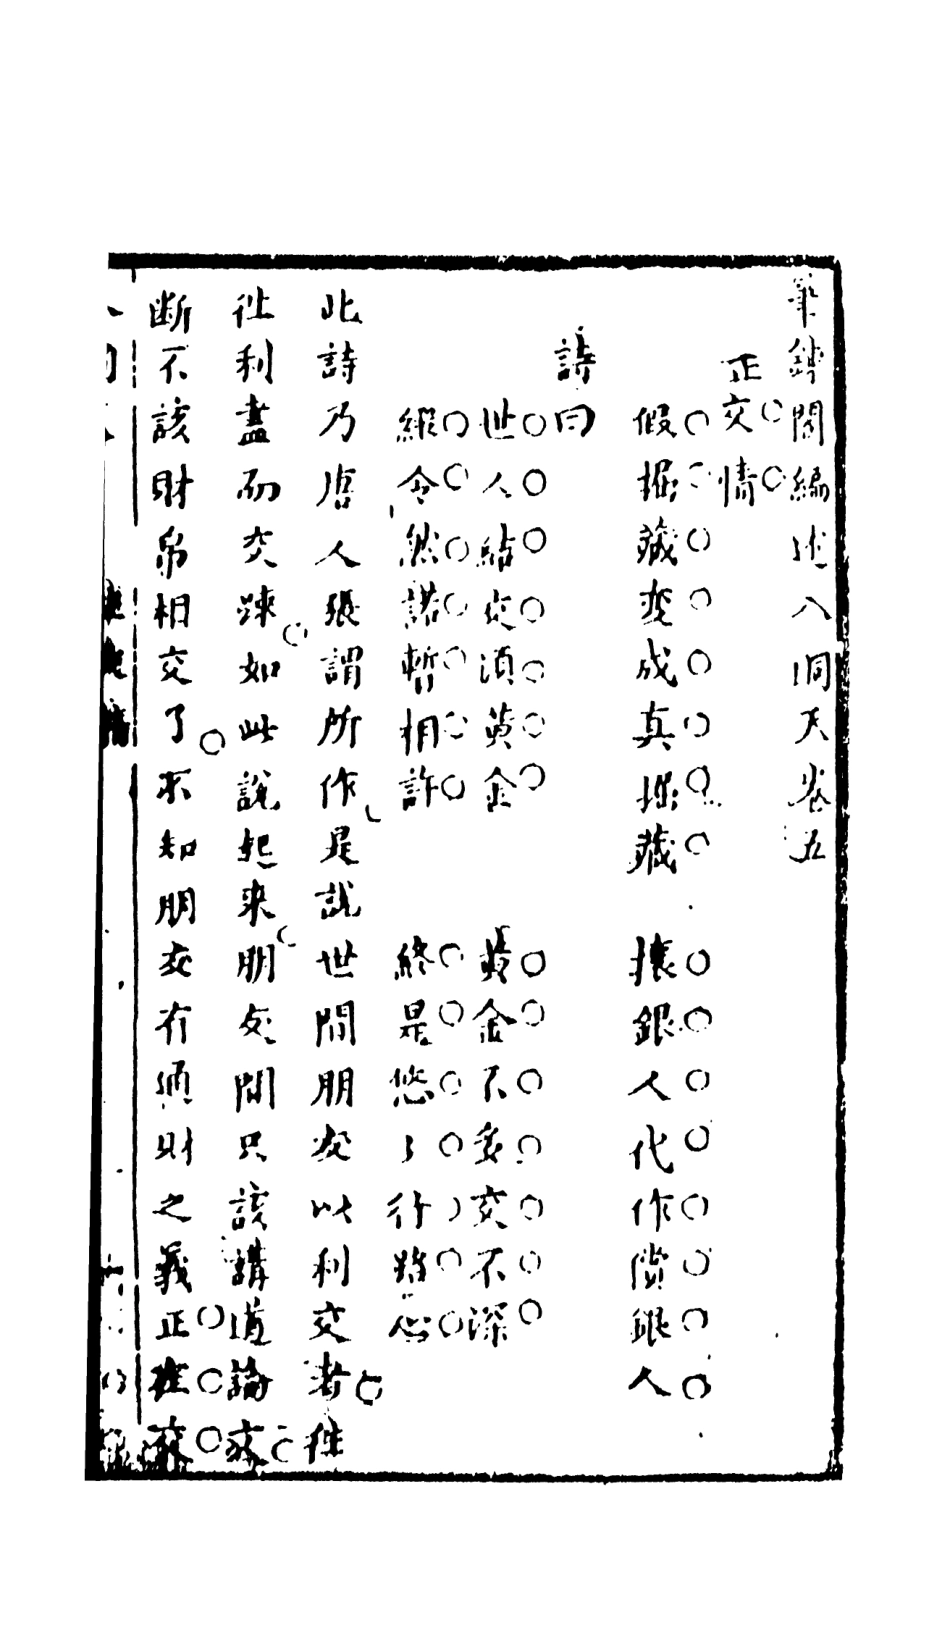 筆鍊閣編述八洞天卷五
正交情
假掘藏變成真掘藏　攘銀人代作償銀人
詩曰
世人結交須黃金　黃金不多交不深
縱令然諾暫相許　終是悠々行路心
此詩乃唐人張謂所作是說世間朋友以利交者往
往利盡而交疎如此說起來朋友間只該講道論文
斷不該財帛相交了不知朋友有通財之義正在交